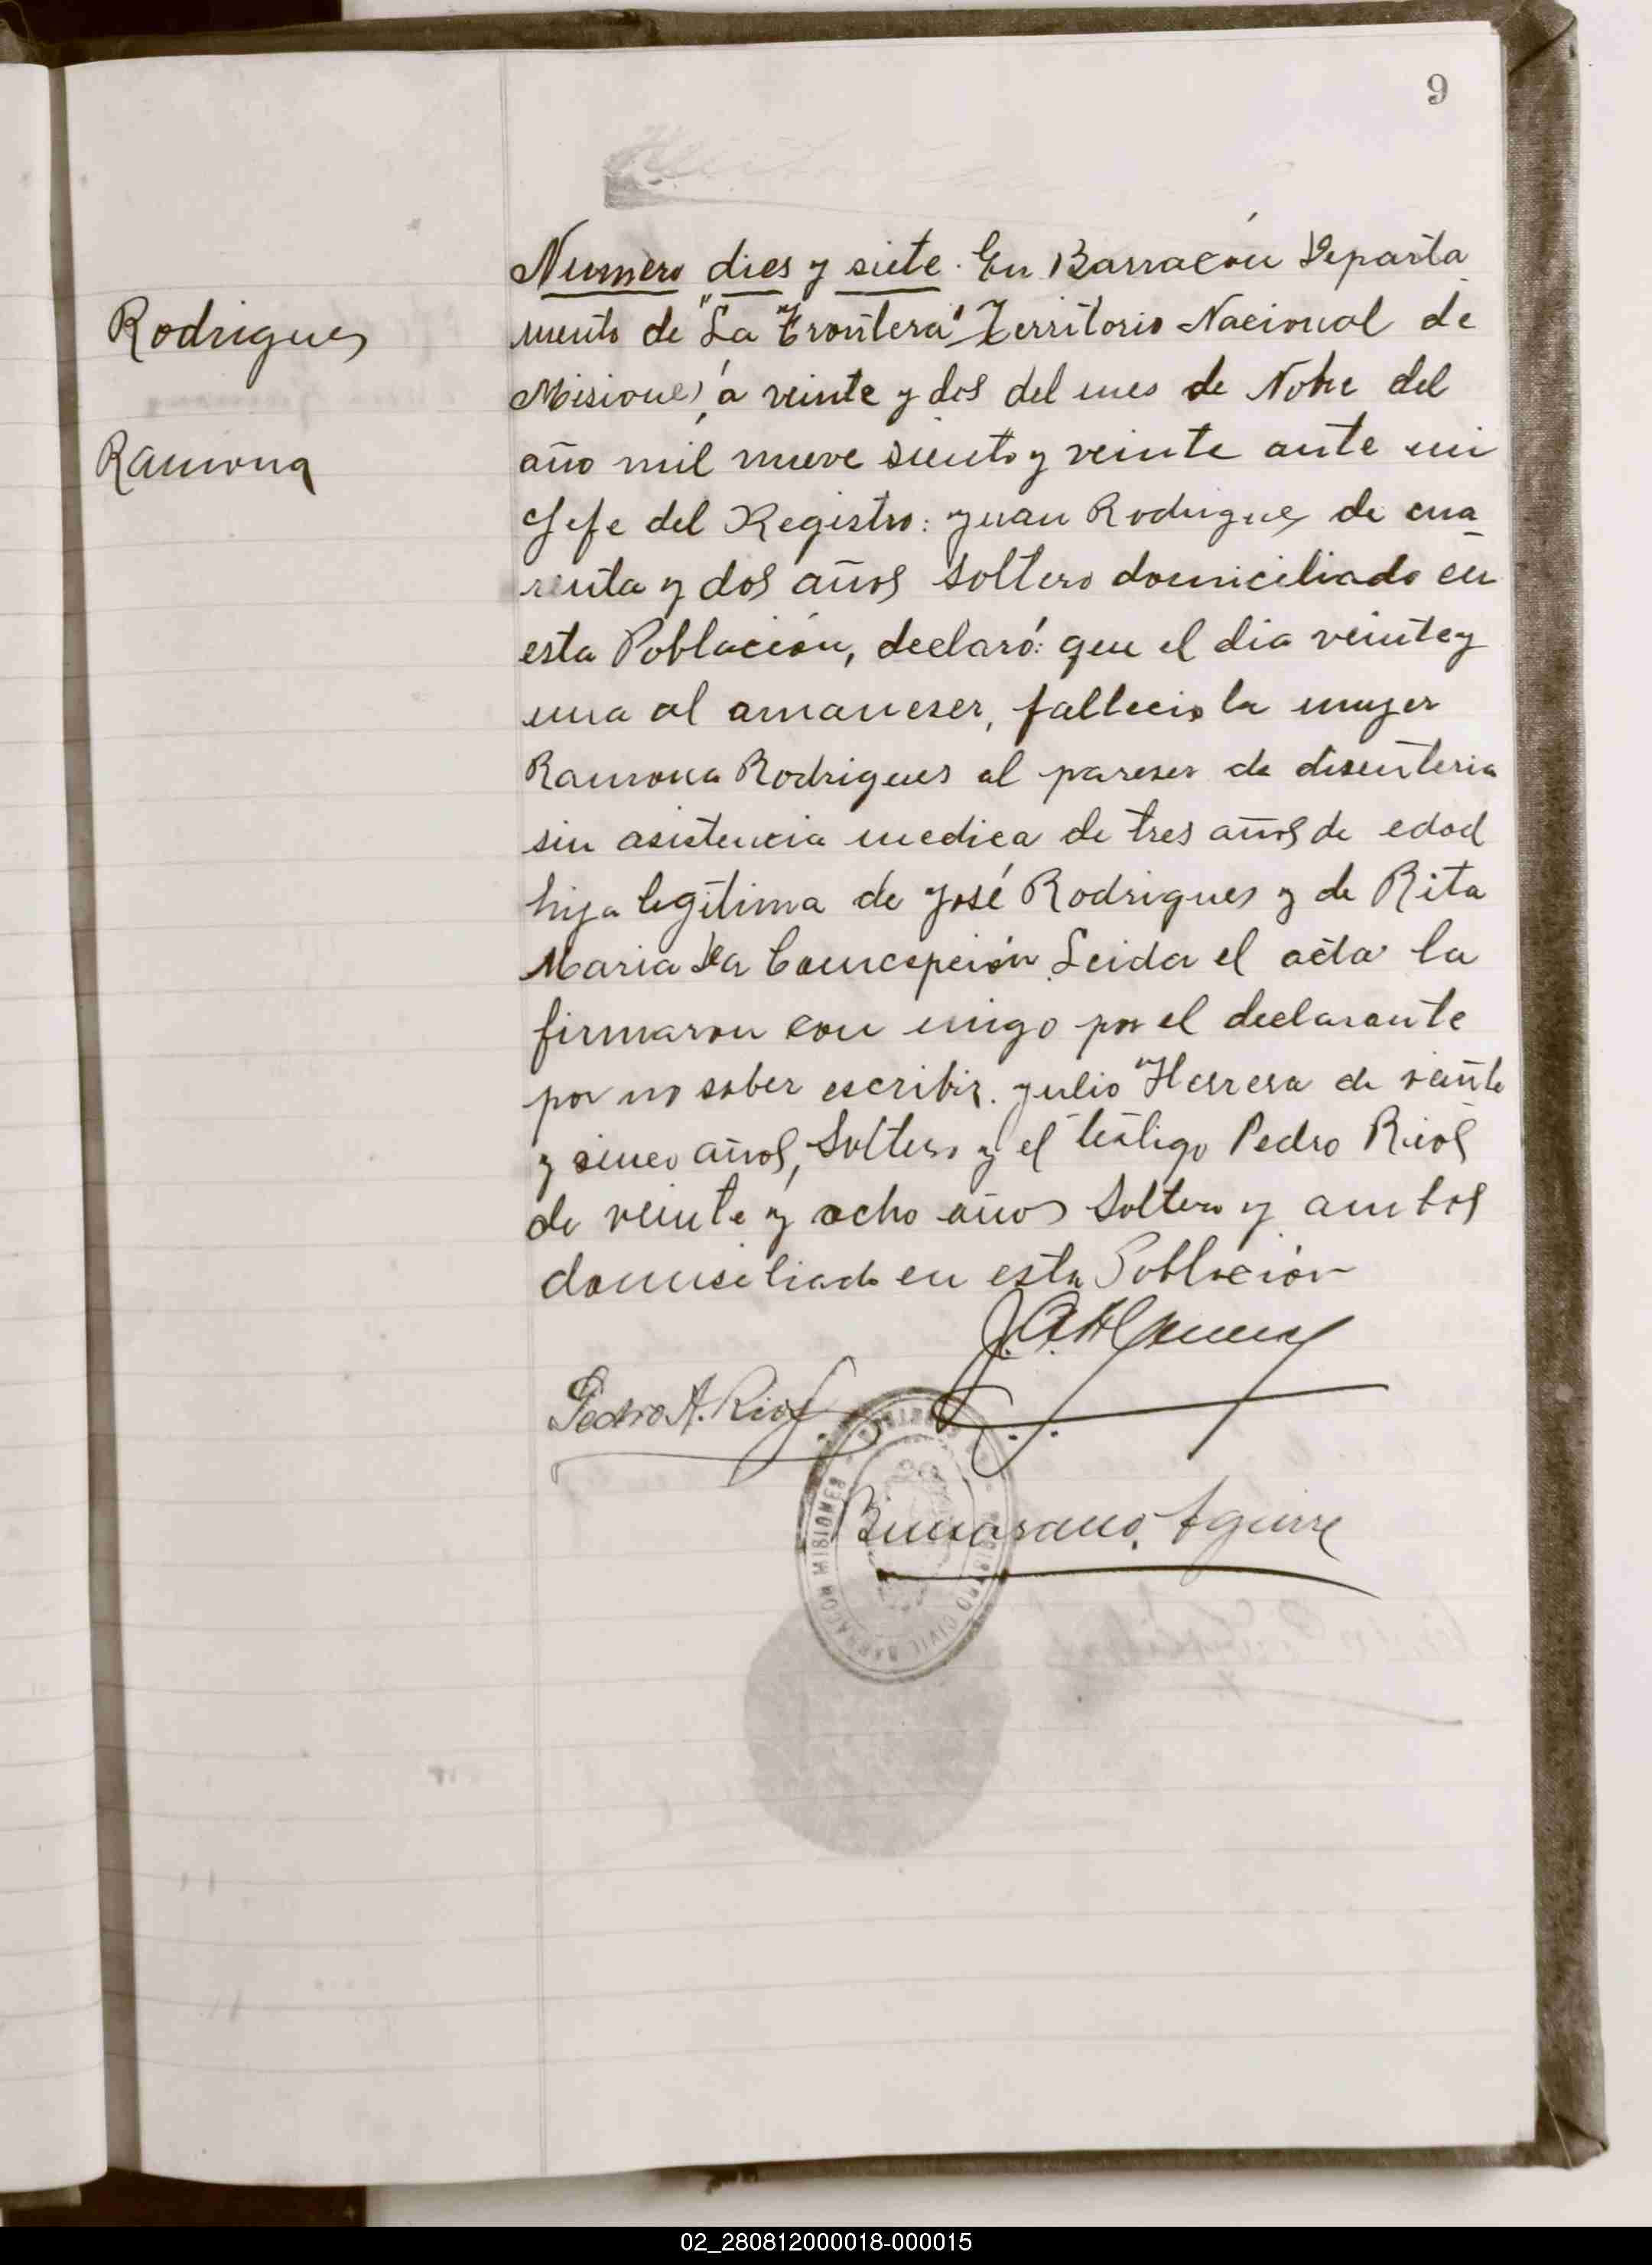 9
Numero dies y siete. En Barracón Departa
mento de "La Frontera" Territorio Nacional de
Rodrigues
Misiones, á veinte y dos del mes de Nobre del
año mil nueve siento y veinte ante mi
Ramona
Jefe del Registro: Juan Rodrigues de cua
renta y dos años soltero domiciliado en
esta Población, declaró: que el dia veinte y
una al amaneser, fallecio la mujer
Ramona Rodrigues al pareser de disenteria
sin asistencia medica de tres años de edad
hija legítima de José Rodrigues y de Rita
Maria Da Concepción. Leida el acta la
firmaron con migo por el declarante
por no saber escribir. Julio Herrera de veinte
y sinco años, Soltero y el testigo Pedro Rios
de veinte y ocho años Soltero y ambos
domisiliado en esta Población
Pedro A. Rios
Aguirre
REGISTRO CIVIL BARRACON MISIONES
02_280812000018-000015